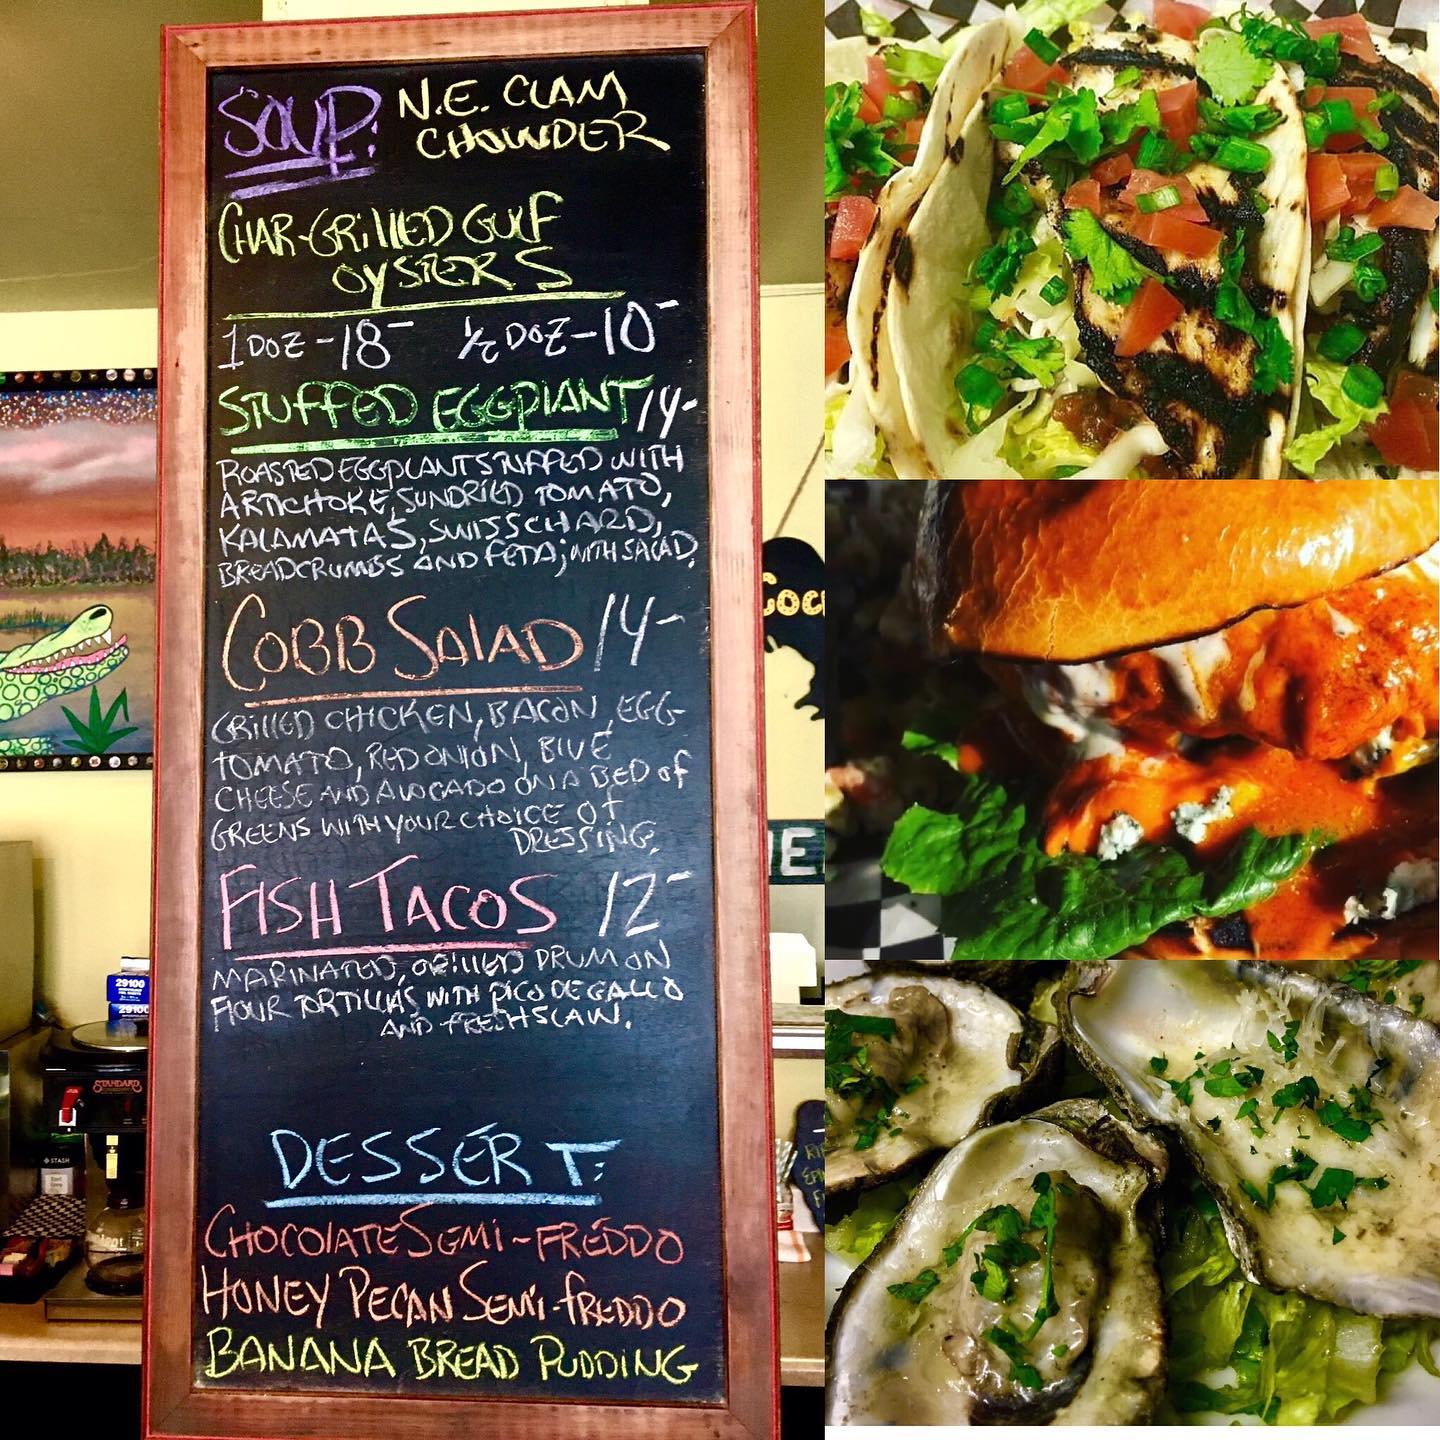 SOUP: N.E. CLAM
CHOWDER
CHAR-GRILLED GULF
OYSTERS
1 DOZ - 18- ½ DOZ - 10-
STUFFED EGGPLANT 14-
ROASTED EGGPLANT STUFFED WITH
ARTICHOKE, SUNDRIED TOMATO,
KALAMATAS, SWISS CHARD,
BREADCRUMBS AND FETA; WITH SALAD.
COBB SALAD 14-
GRILLED CHICKEN, BACON, EGG
TOMATO, RED ONION, BLUE
CHEESE AND AVOCADO ON A BED OF
GREENS WITH YOUR CHOICE OF
DRESSING.
FISH TACOS 12-
MARINATED, GRILLED DRUM ON
FLOUR TORTILLAS WITH PICO DE GALLO
AND FRESH SLAW.
DESSERT:
CHOCOLATE SEMI-FREDDO
HONEY PECAN SEMI-FREDDO
BANANA BREAD PUDDING
29100
29100
STANDARD
STASH